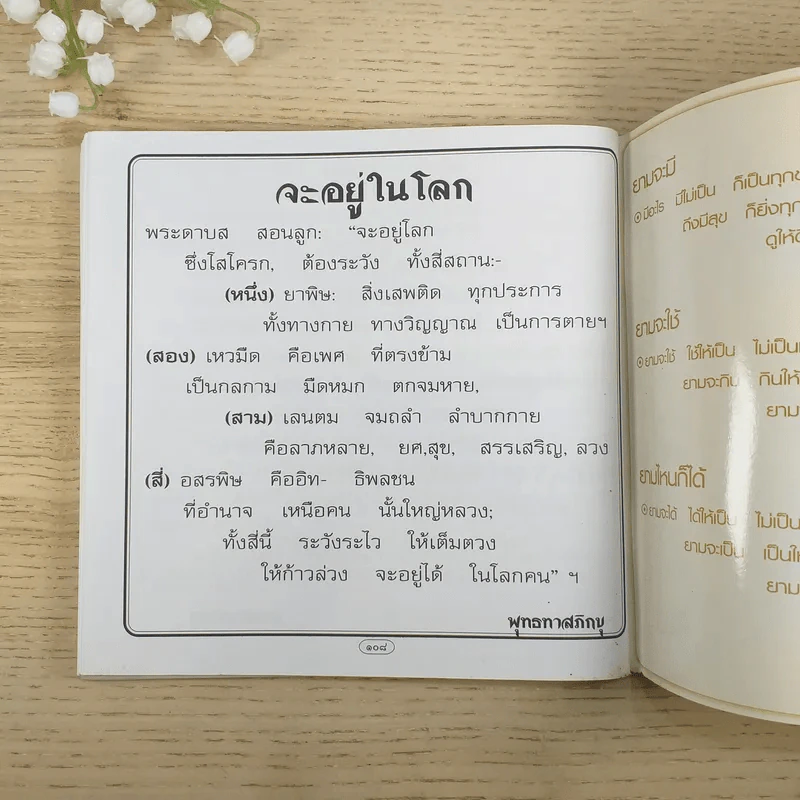 จะอยู่ในโลก
พระดาบส สอนลูก: “จะอยู่โลก
ซึ่งโสโครก, ต้องระวัง ทั้งสี่สถาน:-
(หนึ่ง) ยาพิษ: สิ่งเสพติด ทุกประการ
ทั้งทางกาย ทางวิญญาณ เป็นการตายฯ
(สอง) เหวมืด คือเพศ ที่ตรงข้าม
เป็นกลกาม มืดหมก ตกจมหาย,
(สาม) เลนตม จมถลำ ลำบากกาย
คือลาภหลาย, ยศ,สุข, สรรเสริญ, ลวง
(สี่) อสรพิษ คืออิท- ธิพลชน
ที่อำนาจ เหนือคน นั้นใหญ่หลวง;
ทั้งสี่นี้ ระวังระไว ให้เต็มตวง
ให้ก้าวล่วง จะอยู่ได้ ในโลกคน” ฯ
พุทธทาสภิกขุ
๑๐๘
ยามจะมี
มีอะไร มีไม่เป็น ก็เป็นทุกข
ถึงมีสุข ก็ยิ่งทุก
ดูให้ดี
ยามจะใช้
ยามจะใช้ ใช้ให้เป็น ไม่เป็น
ยามจะกิน กินให้
ยาม
ยามไหนก็ได้
ยามจะได้ ได้ให้เป็น ไม่เป็น
ยามจะเป็น เป็นให้
ยาม